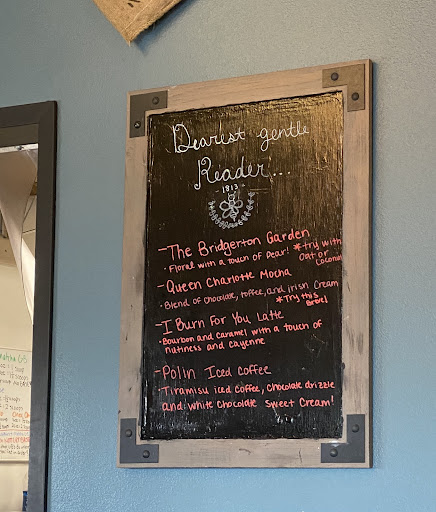 Dearest gentle
Reader...
- 1813 -
- The Bridgerton Garden
• Floral with a touch of Pear! *Try with
Oat or
Coconut
- Queen Charlotte Mocha
• Blend of chocolate, toffee, and irish cream
*Try this
Breve!
- I Burn For You Latte
• Bourbon and caramel with a touch of
nuttiness and cayenne
- Polin Iced Coffee
Tiramisu iced coffee, chocolate drizzle
and white chocolate sweet cream!